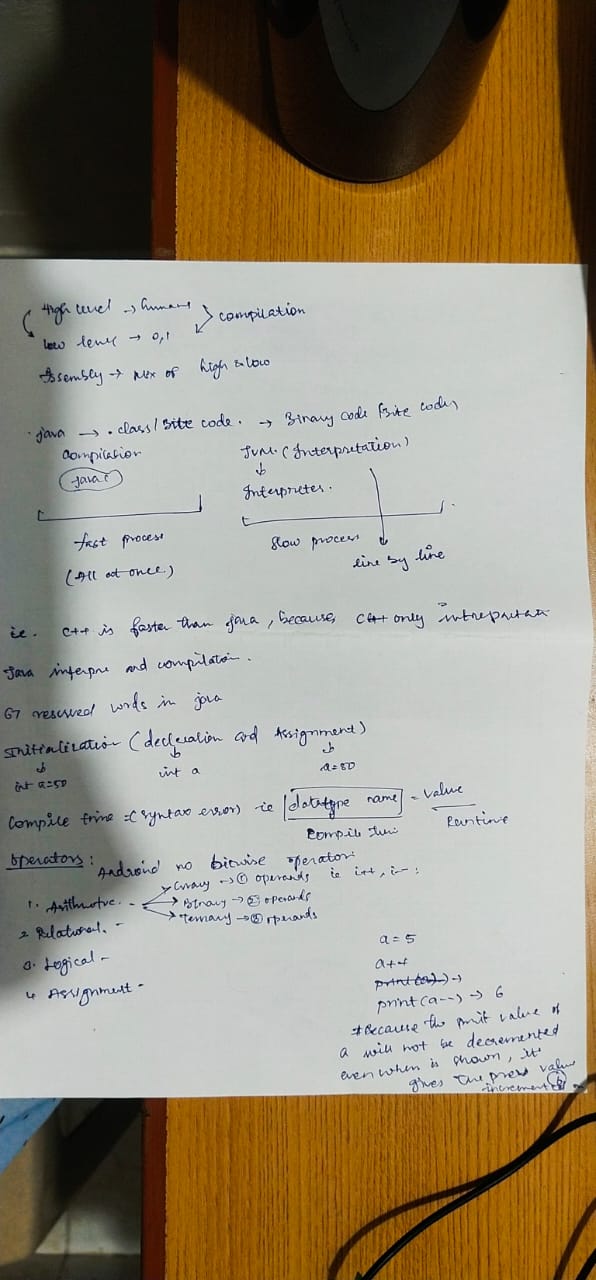 High level → humans
low level → 0,1
compilation
Assembly → Mix of high & low
Java → .class / Bite code. → Binary code (Bite code)
compilation
JVM. (Interpretation)
Javac
Interpreter.
fast process
slow process
line by line
(All at once)
ie. C++ is faster than java, because, C++ only
Java and compilation.
67 reserved words in java
Initialization (decleration and Assignment)
int a=50
int a
a=50
Compile time =(syntax error) ie datatype name = value
compile time
Runtime
Operators:
Android no bitwise operator
Unary → ① operands ie i++, i--;
1. Arithmetic. - Binary → ② operands
Ternary → ③ operands
2 Relational. -
3. Logical -
4. Assignment -
a = 5
a++
print(a) →
print(a--) → 6
*Because the value of
a will not be decremented
even when is shown, it
gives the value